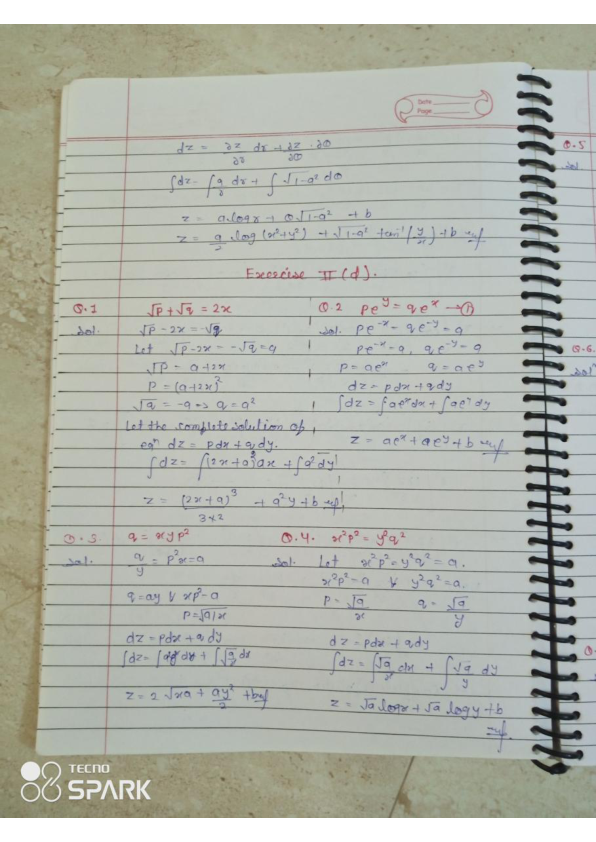 Date
Page
dz = ∂z/∂r dr + ∂z/∂θ · ∂θ
∫dz = ∫ a/r dr + ∫ √1-a² dθ
z = a log r + θ√1-a² + b
z = a/2 log(x²+y²) + √1-a² tan⁻¹(y/x) + b
Exercise II (d).
Q.1 √p + √q = 2x
Sol. √p - 2x = -√q
Let √p - 2x = -√q = a
√p = a+2x
P = (a+2x)²
√q = -a ⇒ q = a²
Let the complete solution of
eqⁿ dz = pdx + qdy.
∫dz = ∫(2x+a)²dx + ∫a²dy
z = (2x+a)³/3×2 + a²y + b
Q.2 pe^y = qe^x → ①
Sol. pe^-x = qe^-y = a
pe^-x = a, qe^-y = a
P = ae^x q = ae^y
dz = pdx + qdy
∫dz = ∫ae^x dx + ∫ae^y dy
z = ae^x + ae^y + b
Q.3 q = xyp²
Sol. q/y = p²x = a
q = ay & xp² = a
P = √a/x
dz = pdx + qdy
z = 2√xa + ay²/2 + b
Q.4. x²p² = y²q²
Sol. Let x²p² = y²q² = a.
x²p² = a & y²q² = a.
P = √a/x q = √a/y
dz = pdx + qdy
∫dz = ∫ √a/x dx + ∫ √a/y dy
z = √a log x + √a log y + b
Q.5
Sol
Q.6.
Solⁿ
TECNO
SPARK